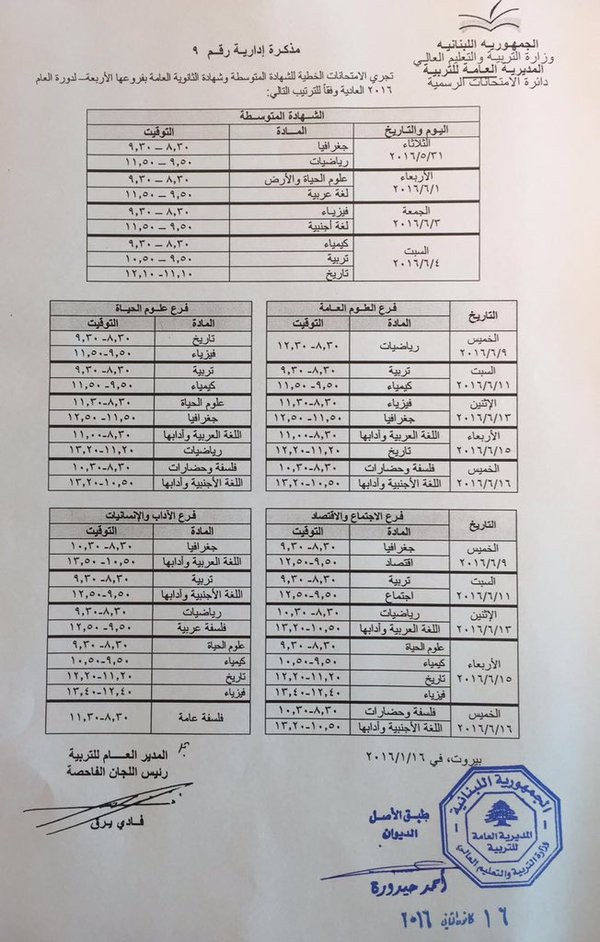 الجمهورية اللبنانية
وزارة التربية والتعليم العالي
المديرية العامة للتربية
دائرة الامتحانات الرسمية
مذكرة إدارية رقم ٩
تجري الامتحانات الخطية للشهادة المتوسطة وشهادة الثانوية العامة بفروعها الأربعة– لدورة العام
٢٠١٦ العادية وفقاً للترتيب التالي:
الشهادة المتوسطة
اليوم والتاريخ المادة التوقيت
الثلاثاء جغرافيا ٨,٣٠ – ٩,٣٠
٢٠١٦/٥/٣١ رياضيات ٩,٥٠ – ١١,٥٠
الأربعاء علوم الحياة والأرض ٨,٣٠ – ٩,٣٠
٢٠١٦/٦/١ لغة عربية ٩,٥٠ – ١١,٥٠
الجمعة فيزياء ٨,٣٠ – ٩,٣٠
٢٠١٦/٦/٣ لغة أجنبية ٩,٥٠ – ١١,٥٠
السبت كيمياء ٨,٣٠ – ٩,٣٠
٢٠١٦/٦/٤ تربية ٩,٥٠ – ١٠,٥٠
تاريخ ١١,١٠–١٢,١٠
التاريخ فرع العلوم العامة فرع علوم الحياة
المادة التوقيت المادة التوقيت
الخميس رياضيات ٨,٣٠–١٢,٣٠ تاريخ ٨,٣٠–٩,٣٠
٢٠١٦/٦/٩ فيزياء ٩,٥٠–١١,٥٠
السبت تربية ٨,٣٠–٩,٣٠ تربية ٨,٣٠–٩,٣٠
٢٠١٦/٦/١١ كيمياء ٩,٥٠–١١,٥٠ كيمياء ٩,٥٠–١١,٥٠
الإثنين فيزياء ٨,٣٠–١١,٣٠ علوم الحياة ٨,٣٠–١١,٣٠
٢٠١٦/٦/١٣ جغرافيا ١١,٥٠–١٢,٥٠ جغرافيا ١١,٥٠–١٢,٥٠
الأربعاء اللغة العربية وآدابها ٨,٣٠–١١,٠٠ اللغة العربية وآدابها ٨,٣٠–١١,٠٠
٢٠١٦/٦/١٥ تاريخ ١١,٢٠–١٢,٢٠ رياضيات ١١,٢٠–١٣,٢٠
الخميس فلسفة وحضارات ٨,٣٠–١٠,٣٠ فلسفة وحضارات ٨,٣٠–١٠,٣٠
٢٠١٦/٦/١٦ اللغة الأجنبية وآدابها ١٠,٥٠–١٣,٢٠ اللغة الأجنبية وآدابها ١٠,٥٠–١٣,٢٠
التاريخ فرع الاجتماع والاقتصاد فرع الآداب والإنسانيات
المادة التوقيت المادة التوقيت
الخميس جغرافيا ٨,٣٠–٩,٣٠ جغرافيا ٨,٣٠–١٠,٣٠
٢٠١٦/٦/٩ اقتصاد ٩,٥٠–١٢,٥٠ اللغة العربية وآدابها ١٠,٥٠–١٣,٥٠
السبت تربية ٨,٣٠–٩,٣٠ تربية ٨,٣٠–٩,٣٠
٢٠١٦/٦/١١ اجتماع ٩,٥٠–١٢,٥٠ اللغة الأجنبية وآدابها ٩,٥٠–١٢,٥٠
الإثنين رياضيات ٨,٣٠–١٠,٣٠ رياضيات ٨,٣٠–٩,٣٠
٢٠١٦/٦/١٣ اللغة العربية وآدابها ١٠,٥٠–١٣,٢٠ فلسفة عربية ٩,٥٠–١٢,٥٠
علوم الحياة ٨,٣٠–٩,٣٠ علوم الحياة ٨,٣٠–٩,٣٠
الأربعاء كيمياء ٩,٥٠–١٠,٥٠ كيمياء ٩,٥٠–١٠,٥٠
٢٠١٦/٦/١٥ تاريخ ١١,٢٠–١٢,٢٠ تاريخ ١١,٢٠–١٢,٢٠
فيزياء ١٢,٤٠–١٣,٤٠ فيزياء ١٢,٤٠–١٣,٤٠
الخميس فلسفة وحضارات ٨,٣٠–١٠,٣٠ فلسفة عامة ٨,٣٠–١١,٣٠
٢٠١٦/٦/١٦ اللغة الأجنبية وآدابها ١٠,٥٠–١٣,٢٠
بيروت، في ٢٠١٦/١/١٦
المدير العام للتربية
رئيس اللجان الفاحصة
فادي يرق
طبق الأصل
الديوان
أحمد حيدورة
الجمهورية اللبنانية
المديرية العامة
للتربية
وزارة التربية والتعليم العالي
١٦ كانون الثاني ٢٠١٦